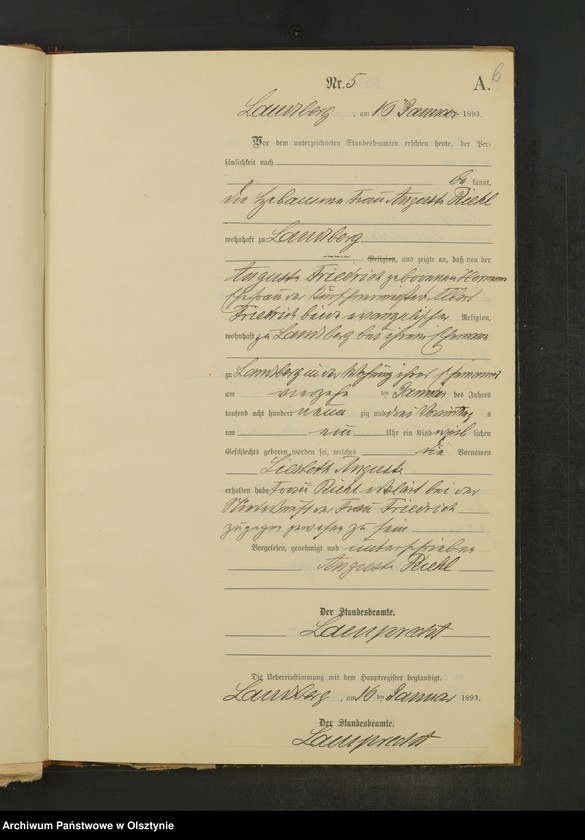 6
Nr. 5 A.
Landsberg, am 16 Januar 1893.
Vor dem unterzeichneten Standesbeamten erschien heute, der Per-
sönlichkeit nach
be kannt,
die Hebamme Frau Auguste Riehl
wohnhaft zu Landsberg
Religion, und zeigte an, daß von der
Auguste Friedrich geborenen Hermann
Ehefrau des Albert
Friedrich beide evangelischer Religion,
wohnhaft zu Landsberg bei ihrem Ehemann
zu Landsberg in der Wohnung ihres Ehemanns
am vierzehn ten Januar des Jahres
tausend acht hundert neun zig und drei Vormittags
um ein Uhr ein Kind weib lichen
Geschlechts geboren worden sei, welches die Vornamen
Liesbeth Auguste
erhalten habe Frau Riehl erklärt bei der
Niederkunft der Frau Friedrich
zugegen gewesen zu sein
Vorgelesen, genehmigt und unterschrieben
Auguste Riehl
Der Standesbeamte.
Lamprecht
Die Uebereinstimmung mit dem Hauptregister beglaubigt.
Landsberg, am 16 ten Januar 1893.
Der Standesbeamte.
Lamprecht
Archiwum Państwowe w Olsztynie